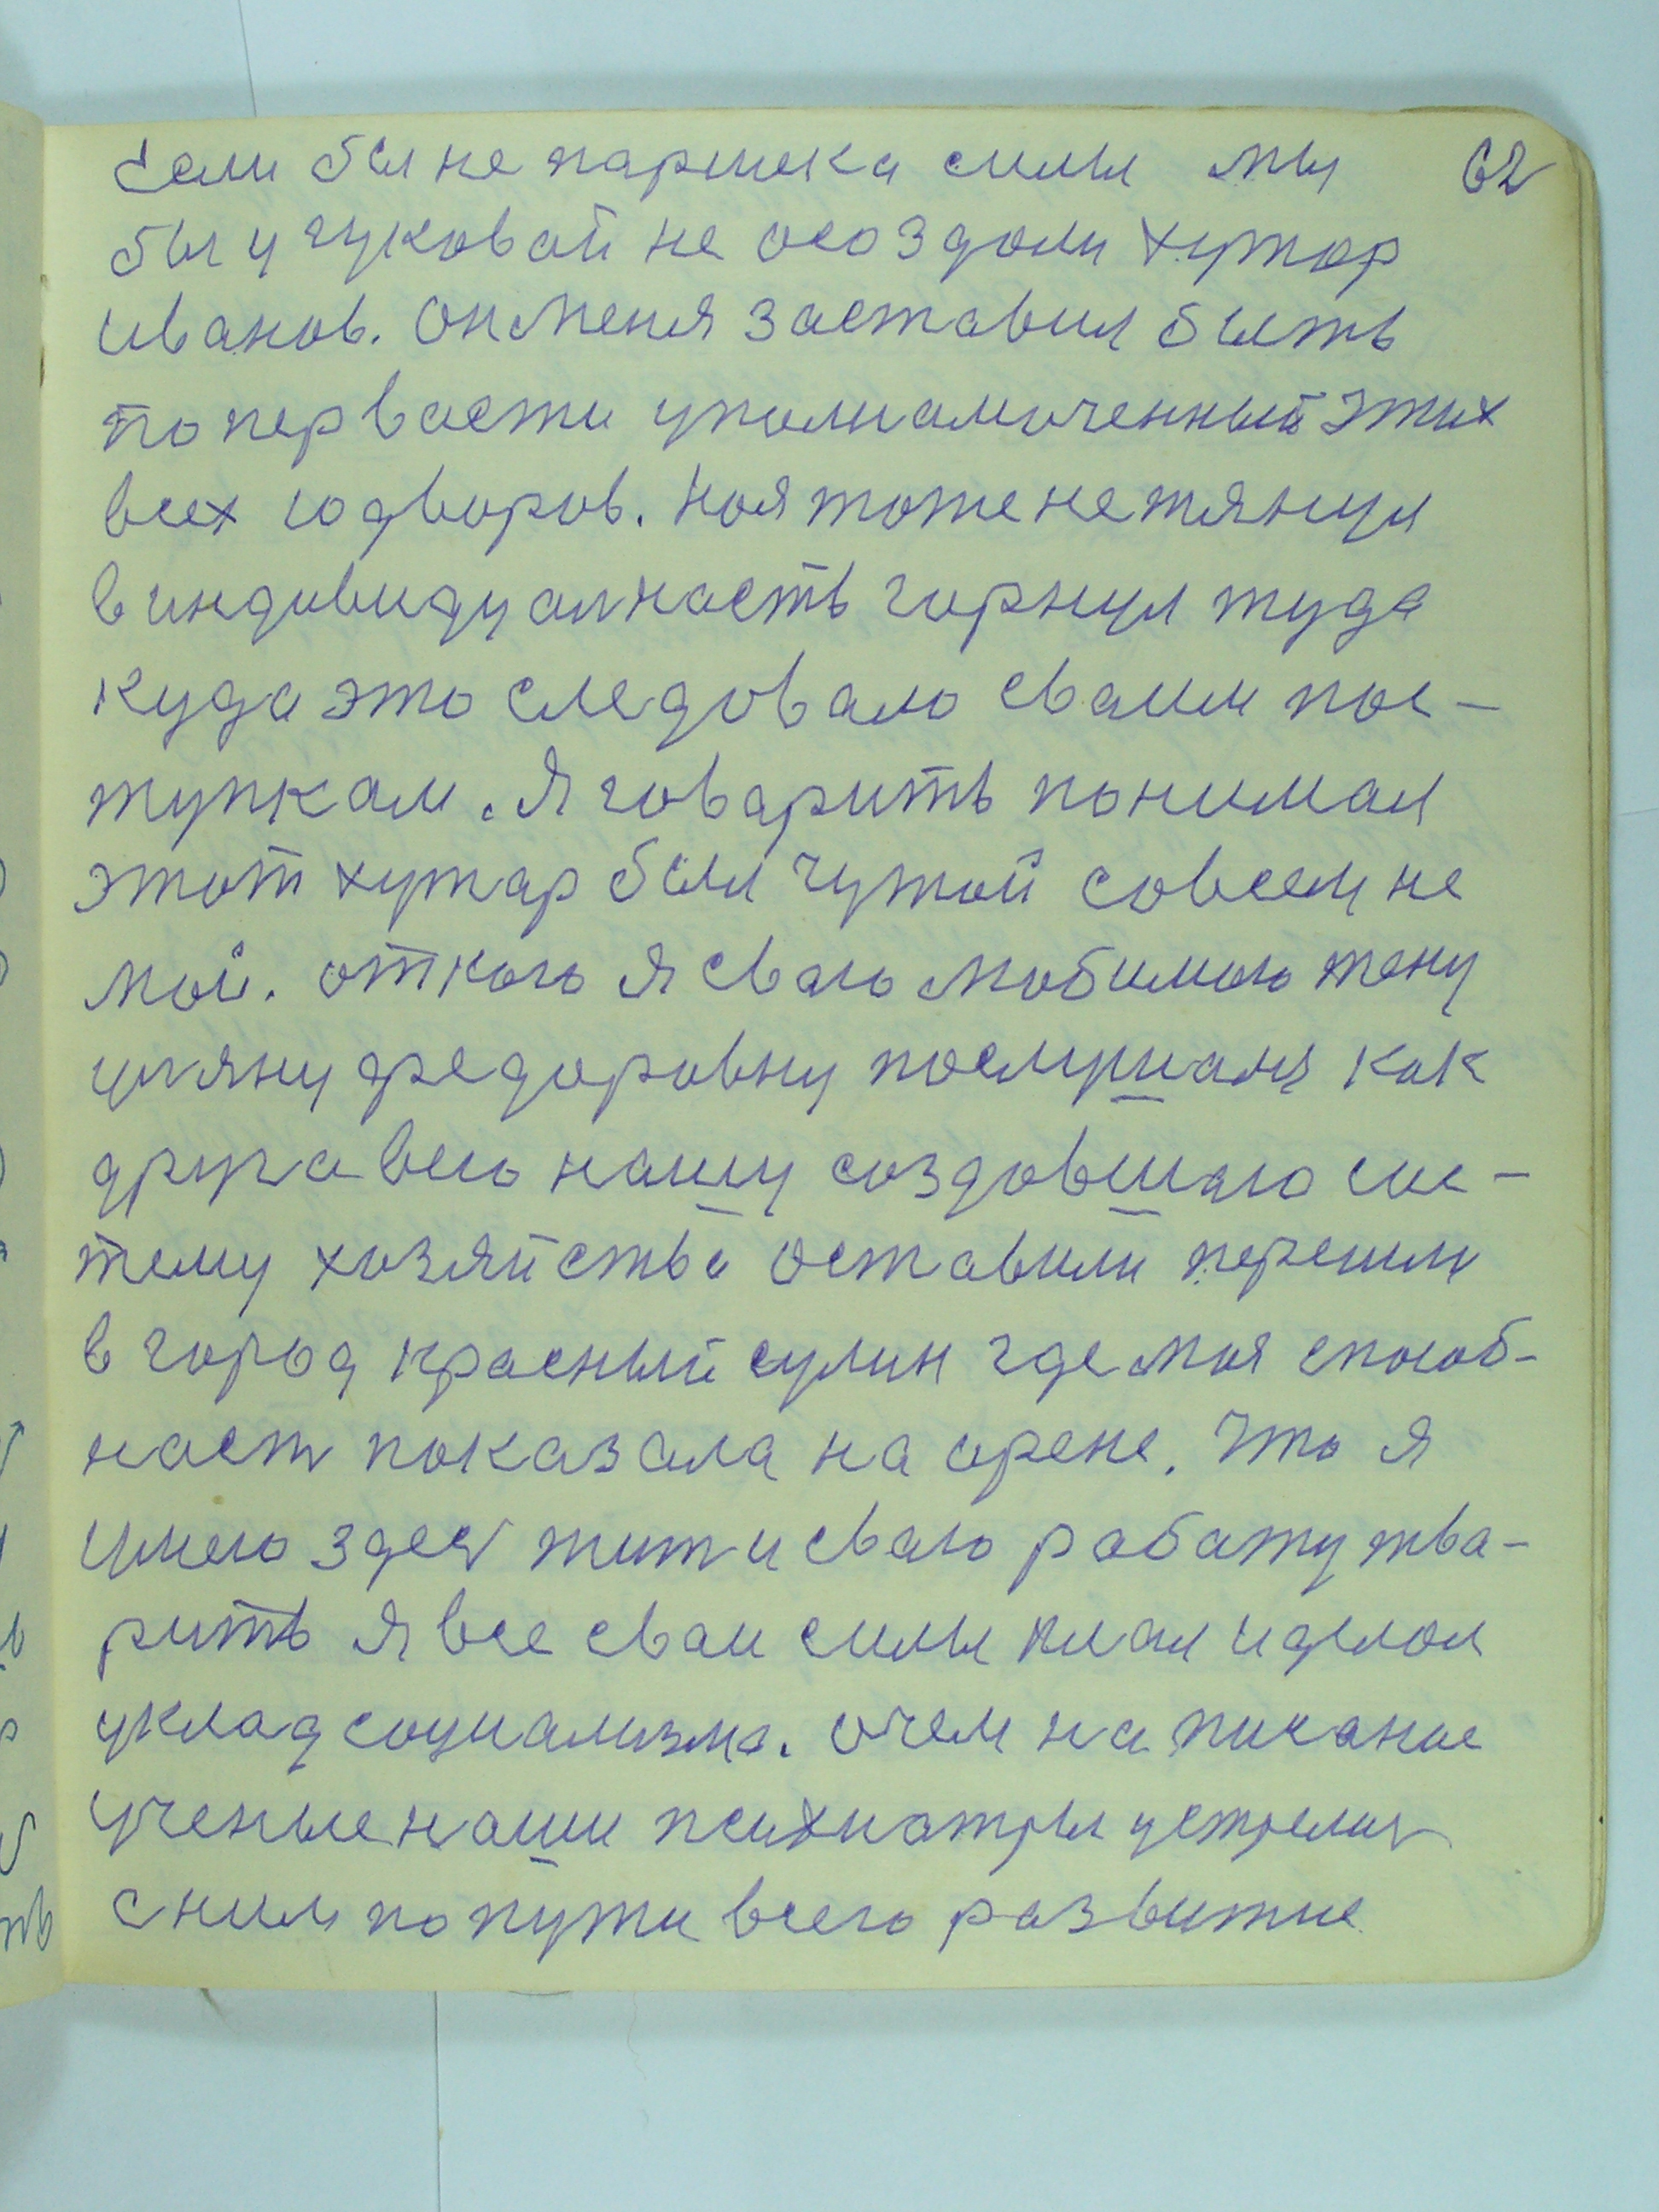 Если бы не паршека силы мы 62
бы у гуковой не осоздали хутор
Иванов. Он меня заставил быть
по первасти уполнамоченный этих
всех 10 дворов. Но я тоже не тянул
в индовидуалность горнул туда
куда это следовало сваим пос-
тупкам. Я говарить понимал
этот хутар был чужой совсем не
мой. откого я сваю любимою жену
Уляну федоровну послушал как
друга всю нашу создовшаю сис-
тему хозяйства оставили перешли
в город красный сулин где моя способ-
наст показала на арене. Что я
умею здеся жит и сваю работу тва-
рить Я все сваи силы клал и делал
уклад социализма. очем на писаное
ученые наши психиатры устрелися
с ним по пути всего развитие